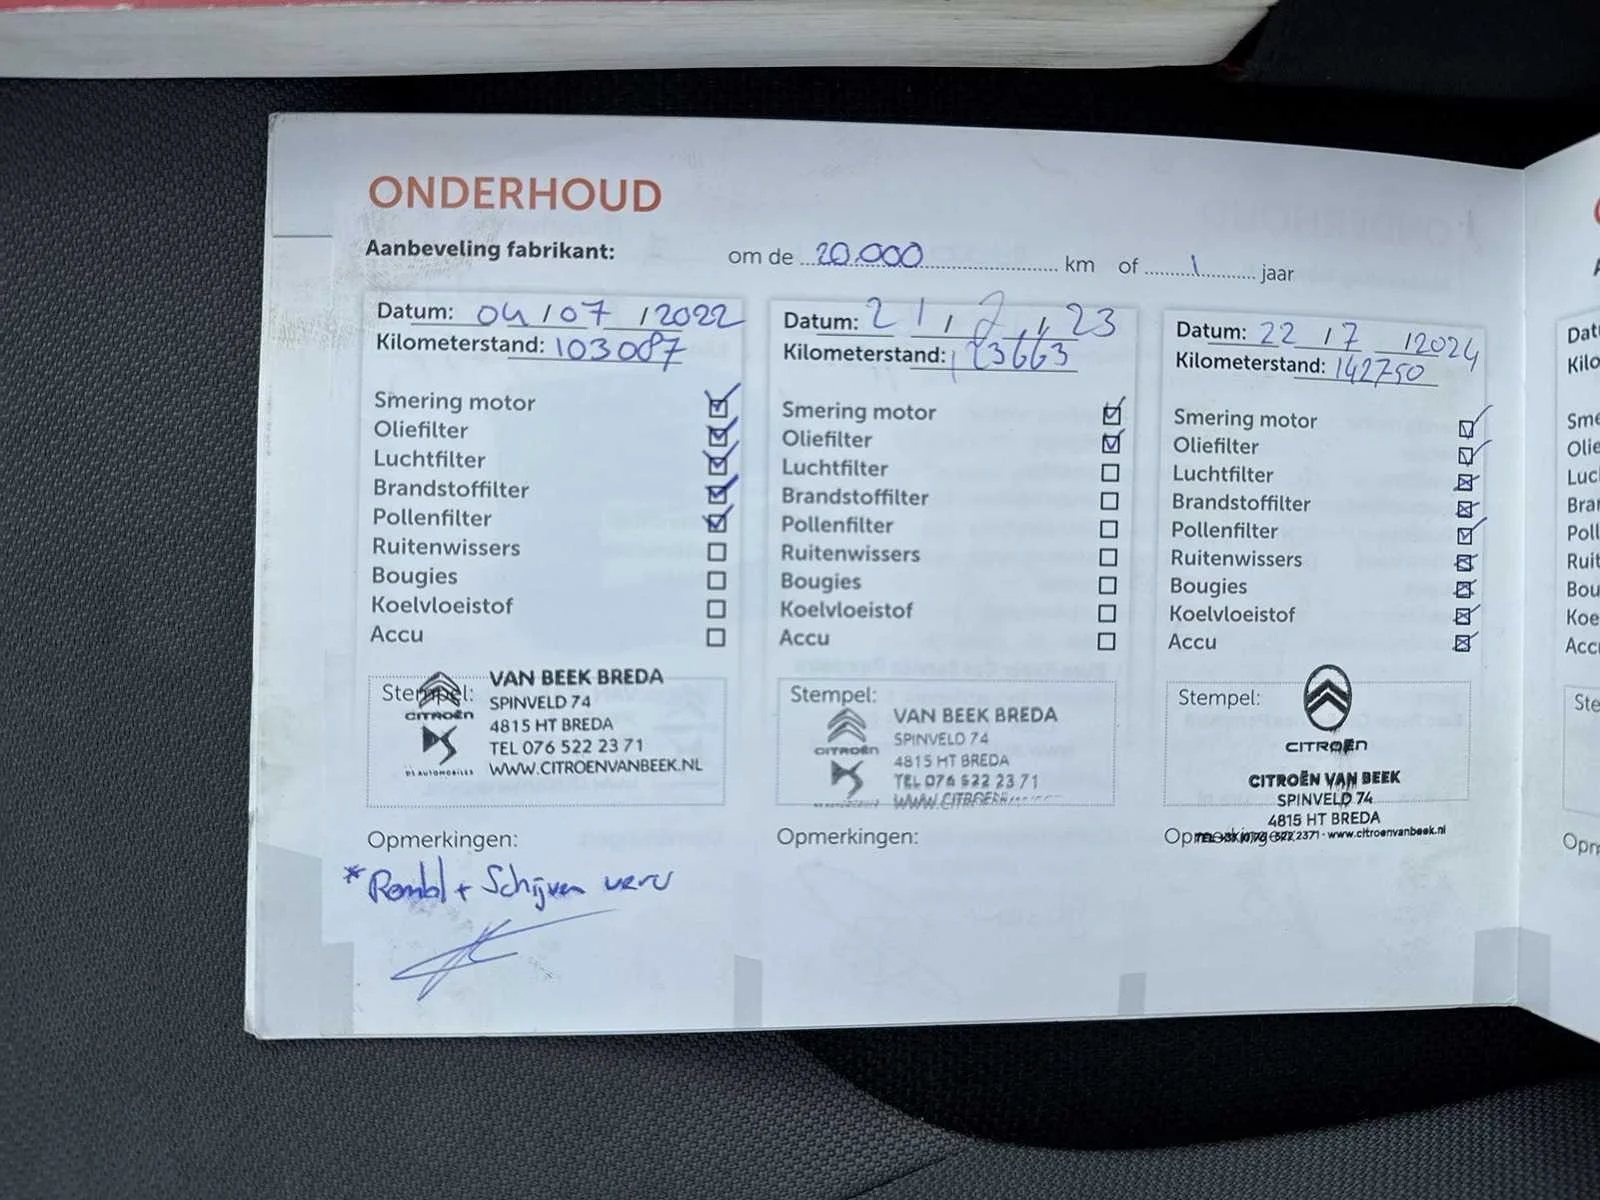 ONDERHOUD
Aanbeveling fabrikant: om de 20.000 km of 1 jaar
Datum: 04/07/2022
Kilometerstand: 103087
Smering motor
Oliefilter
Luchtfilter
Brandstoffilter
Pollenfilter
Ruitenwissers
Bougies
Koelvloeistof
Accu
Stempel:
CITROËN
DS AUTOMOBILES
VAN BEEK BREDA
SPINVELD 74
4815 HT BREDA
TEL 076 522 23 71
WWW.CITROENVANBEEK.NL
Opmerkingen:
* + Schijven
Datum: 21/2/23
Kilometerstand: 123663
Smering motor
Oliefilter
Luchtfilter
Brandstoffilter
Pollenfilter
Ruitenwissers
Bougies
Koelvloeistof
Accu
Stempel:
CITROËN
VAN BEEK BREDA
SPINVELD 74
4815 HT BREDA
TEL 076 522 23 71
Opmerkingen:
Datum: 22/7/2024
Kilometerstand: 142750
Smering motor
Oliefilter
Luchtfilter
Brandstoffilter
Pollenfilter
Ruitenwissers
Bougies
Koelvloeistof
Accu
Stempel:
CITROËN
CITROËN VAN BEEK
SPINVELD 74
4815 HT BREDA
www.citroenvanbeek.nl